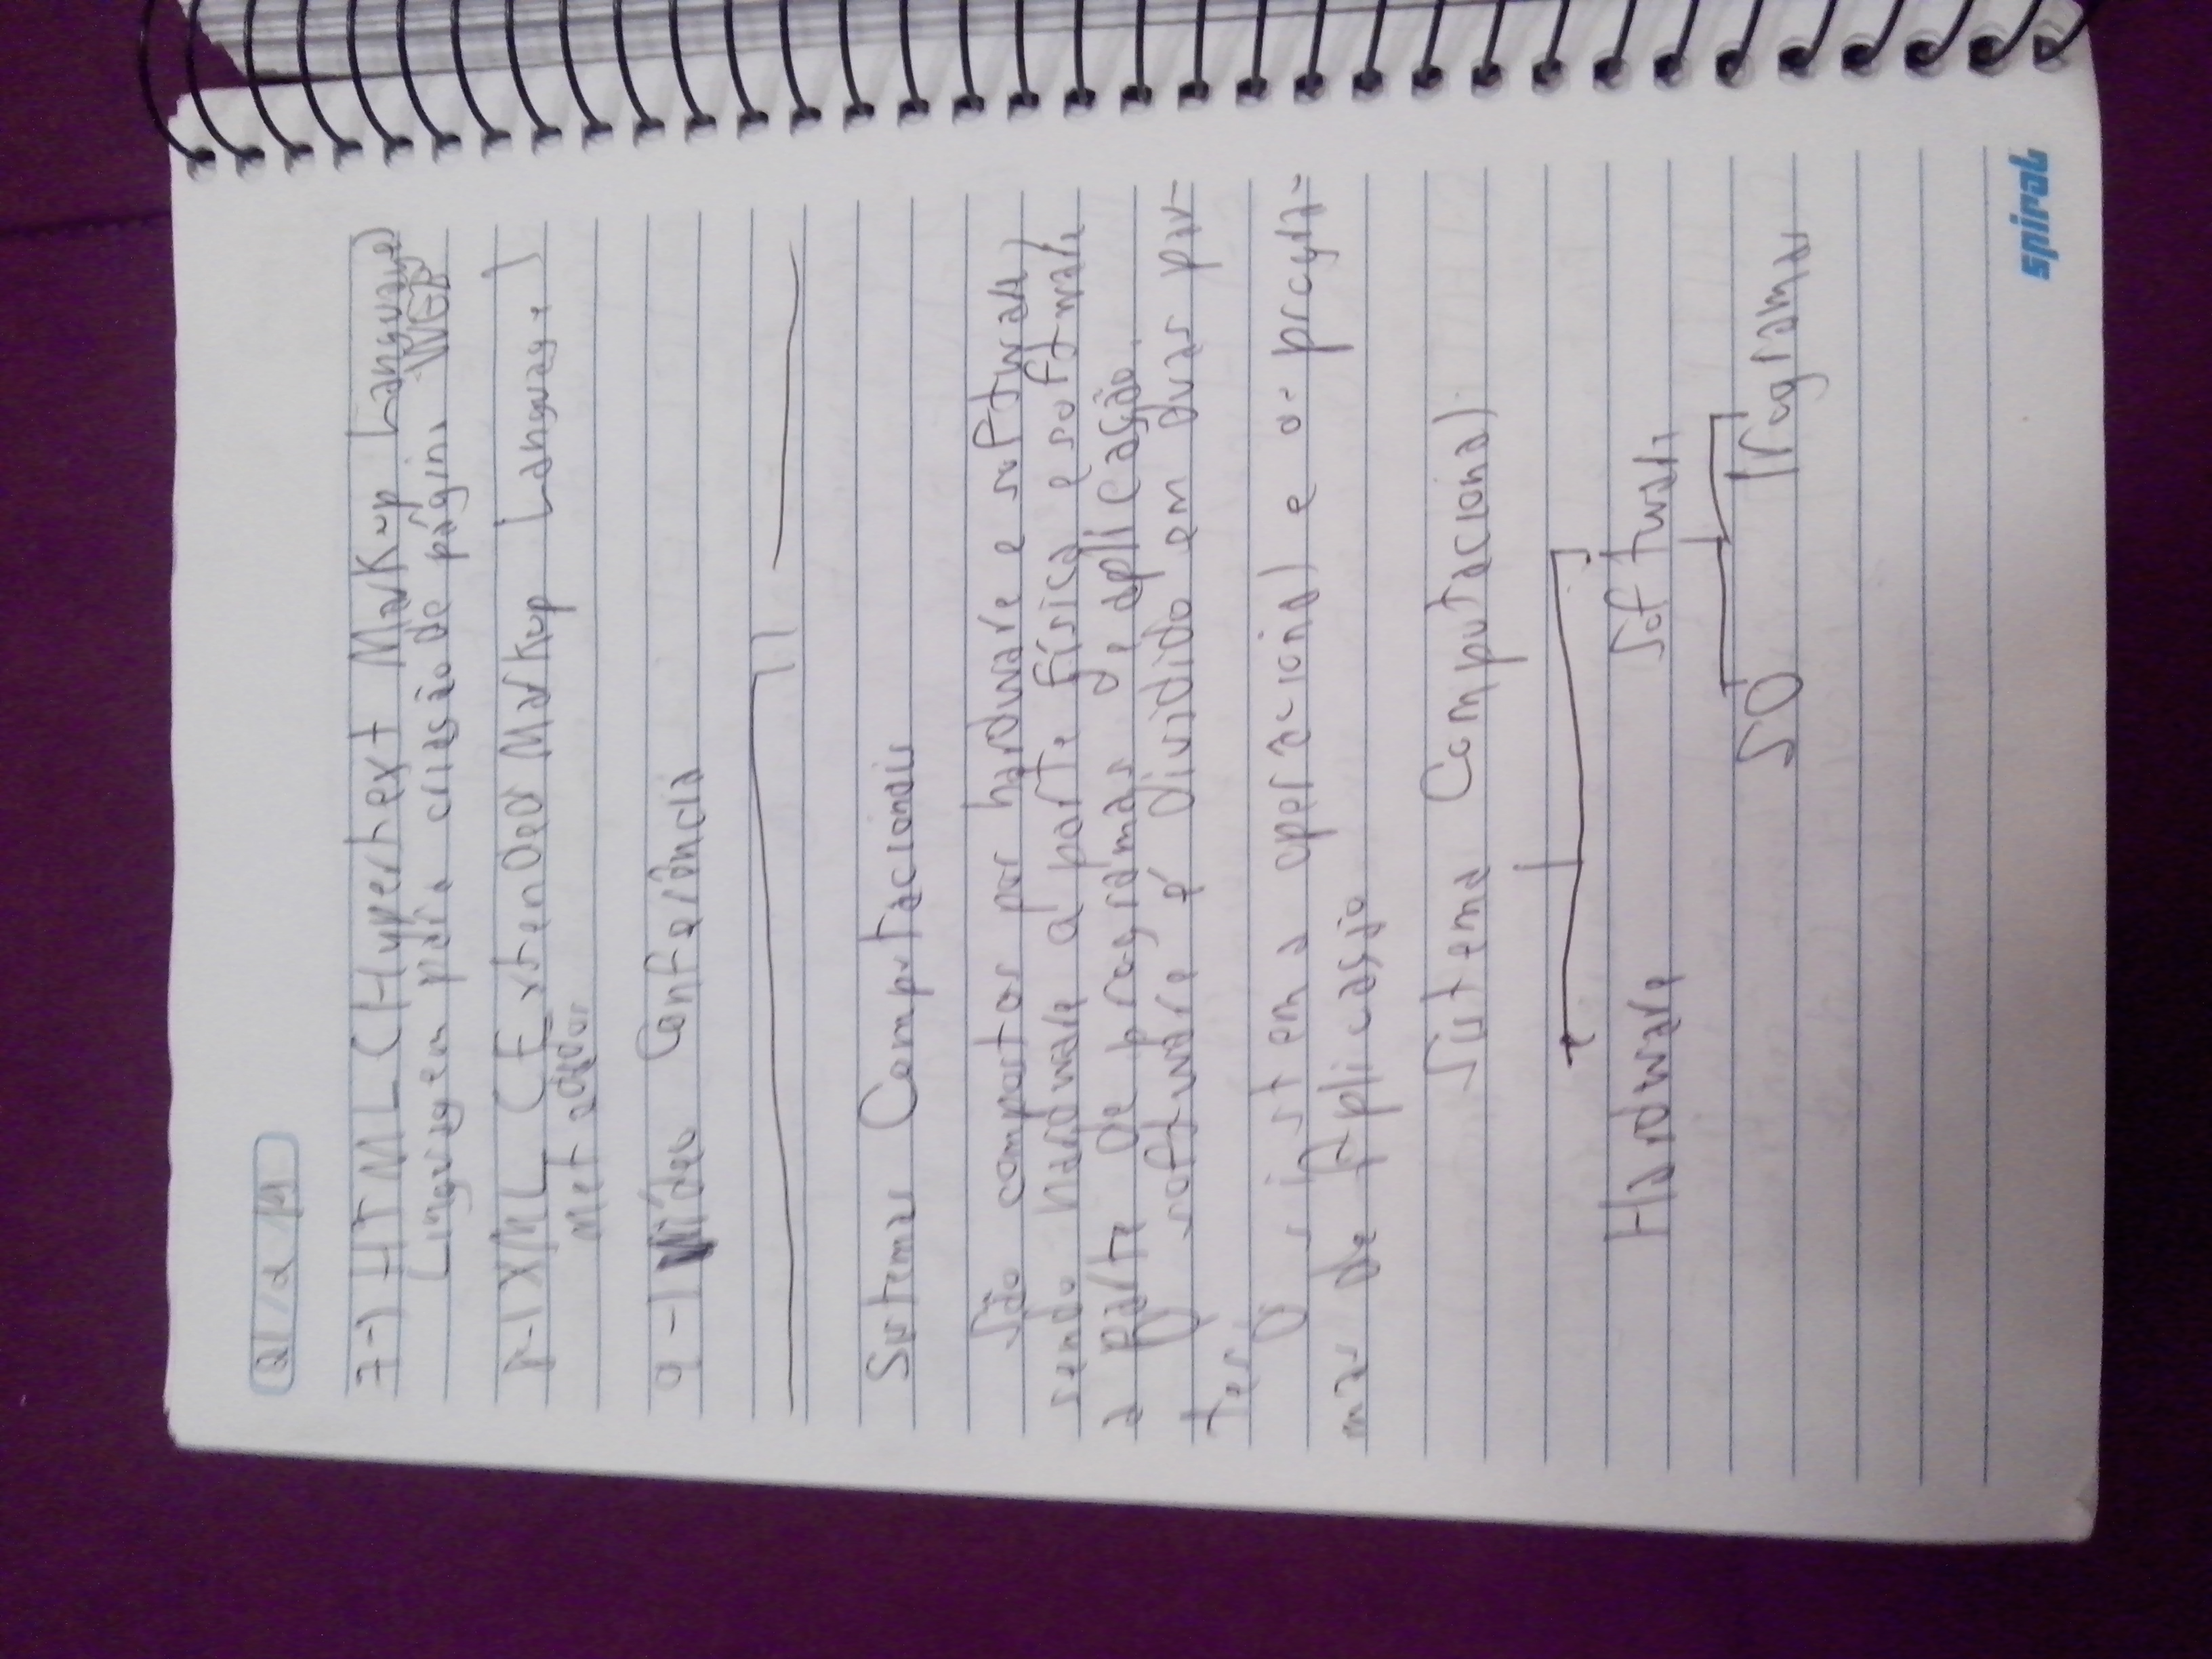 21/2/19
7-) HTML (Hypertext Markup Language)
Linguagem para criação de página WEB
8-) XML (Extended Markup Language)
Metadados
9-) Vídeo Conferência
Sistemas Computacionais
São compostos por hardware e software,
sendo hardware a parte física e software
a parte de programas de aplicação.
O software é dividido em duas par-
tes:
O sistema operacional e os progra-
mas de Aplicação
Sistema Computacional
Hardware Software
SO Programas
spiral